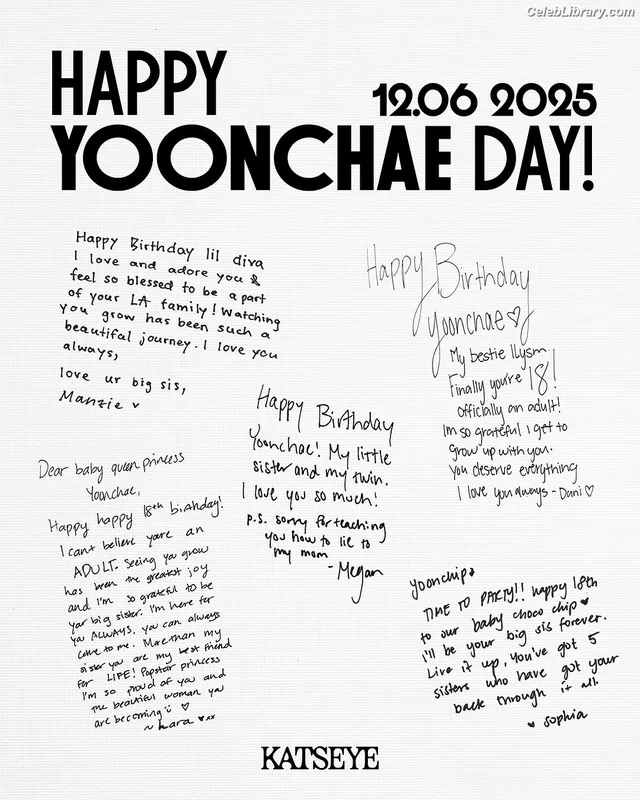 CelebLibrary.com
HAPPY
12.06 2025
YOONCHAE DAY!
Happy Birthday lil diva
I love and adore you &
feel so blessed to be a part
of your LA family! Watching
you grow has been such a
beautiful journey. I love you
always,
love ur big sis,
Manzie
Happy Birthday
Yoonchae ♡
My bestie llysm.
Finally you're 18!
officially an adult!
Im so grateful I get to
grow up with you.
You deserve everything
I love you always - Dani ♡
Happy Birthday
Yoonchae! My little
sister and my twin.
I love you so much!
p.s. sorry for teaching
you how to lie to
my mom
- Megan
Dear baby queen princess
Yoonchae,
Happy happy 18th birthday!
I can't believe you're an
ADULT. Seeing you grow
has been the greatest joy
and I'm so grateful to be
your big sister. I'm here for
you ALWAYS. you can always
come to me. More than my
sister you are my best friend
for LIFE! Popstar princess
I'm so proud of you and
the beautiful woman you
are becoming :) ♡
~ Lara ♥xx
yoonchip
TIME TO PARTY!! happy 18th
to our baby choco chip ♥
i'll be your big sis forever.
Live it up, You've got 5
sisters who have got your
back through it all.
♥ sophia
KATSEYE